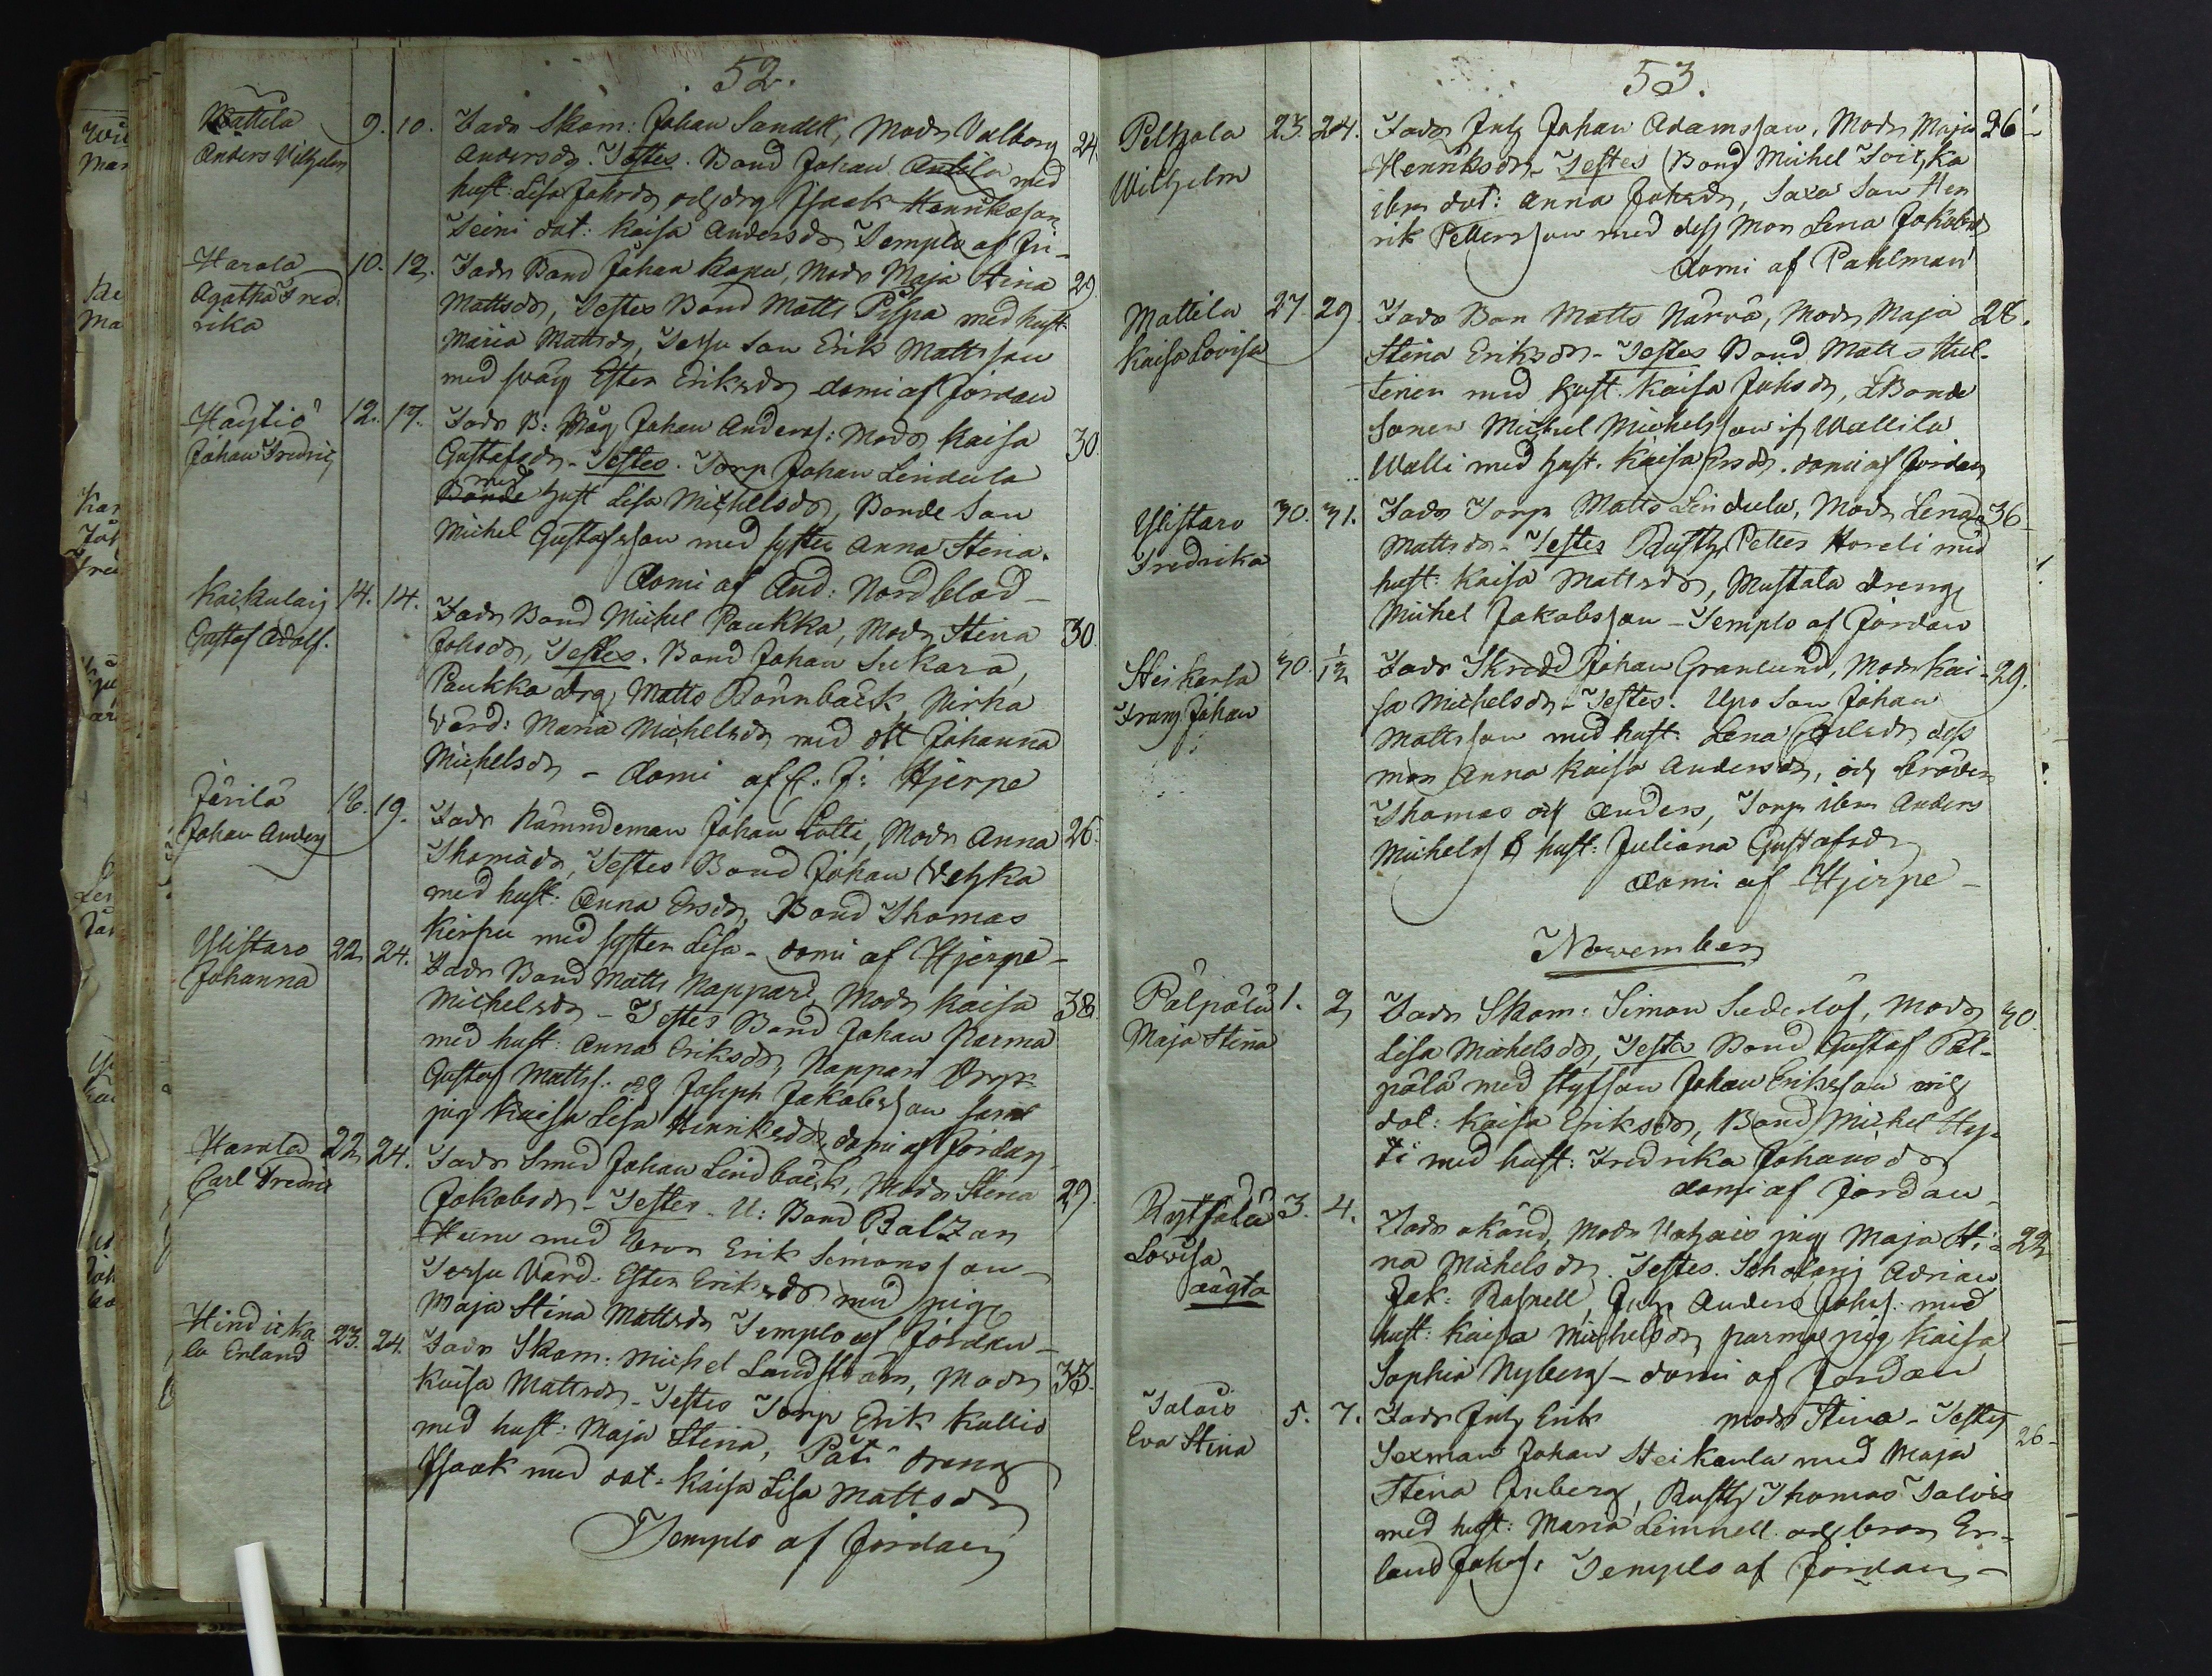 52.
Mattila 9. 10. Fadr Skom: Johan Sandell, Modr Valborg 24
Anders Vilhelm Andersdr. Testes. Bond Johan Antila med
hust: Lisa Johsdr och drg Isaak Henriksson
Seini dot: Kaisa Andersdr Templo af
Harala 10. 12. Fadr Bond Johan Kapu, Modr Maja Stina 29.
Agatha Fred- Mattsdr, Testes Bond Matts Pispa med hust
rika Maria Mattsdr, Tersu Son Erik Mattsson
med swäg Ester Eriksdr domi af Jordan
Haytiö 12. 17. Fadr B: Måg Johan Anderss: Modr Kaisa 30.
Johan Fredric Gustafsdr - Testes. Torp Johan Lindula
med
Bonde hust Lisa Michelsdr, Bonde Son
Michel Gustafsson med syster Anna Stina.
domi af And: Nordblad -
Kaikulais 14. 14. Fadr Bond Michel Paukka, Modr Stina 30
Gustaf Adolf. Johsdr, Testes. Bond Johan Sukara,
Paukka drg Matts Rönnback, Pirka
värd: Maria Michelsdr med dtt Johanna
Michelsdr - domi af C. J: Hjerpe
Järilä 18. 19. Fadr Nämndeman Johan Lolli, Modr Anna 26.
Johan Anders Thomädr, Testes Bond Johan Vehka
med hust: Anna Ersdr, Bond Thomas
Kirpu med syster Lisa - domi af Hjerpe -
Ylistaro 22 24. Fadr Bond Matts Nappari Modr Kaisa 38.
Johanna Michelsdr - Testes Bond Johan Parma
med hust: Anna Eriksdr, Nappari Dreng
Gustaf Mattss. och Joseph Jakobsson samt
pig Kaisa Lisa Henriksdr, domi af Jordan -
Harala 22 24. Fadr Smed Johan Lindbäck, Modr Stina 29.
Carl Fredric Jakobsdr - Testes - U: Bond Balzar
med bror Erik Simonsson -
Tersu Värd: Ester Eriksdr med pig
Maja Stina Mattsdr Templo af Jordan -
Hindicka- 23. 24. Fadr Skom: Michel Landström, Modr 33.
la Erland Kaisa Mattsdr - Testes Torp Erik Kallio
med hust: Maja Stina, Päti dreng
Isaak med dot: Kaisa Lisa Mattsdr
Templo af Jordan
53.
Pelkola 23. 24. Fadr Inh Johan Adamsson, Modr Maja 26
Wilhelm Henriksdr - Testes Bond Michel Toicka
ibm dot: Anna Johsdr, Saxa Son Hen
rik Pettersson med dess Mor Lena Jakobsdr
domi af Pahlman
Mattila 27. 29. Fadr Bon Matts Närvä, Modr Maja 28.
Kaisa Lovisa Stina Eriksdr - Testes Bond Matts
med hust. Kaisa Johsdr, Bonde
Sonen Michel Michelsson if Wallila
Walli med hust. Kaisa Ersdr. domi af Jordan
Ylistaro 30. 31. Fadr Torp Matts Lindula, Modr Lena 36
Fredrika Mattsdr - Testes Rusth Petter Horeli med
hust: Kaisa Mattsdr, Mustala dreng
Michel Jakobsson - Templo af Jordan
Steikarla 30. 1/12 Fadr Skredd Johan Granlund, Modr Kai- 29.
Frans Johan sa Michelsdr - Testes. Upo Son Johan
Mattsson med hust: Lena Carlsdr, dess
mor Anna Kaisa Andersdr, och bröder
Thomas och Anders, Torp ibm Anders
Michelss & hust: Juliana Gustafsdr
domi af Hjerpe -
November
Palpala 1. 2 Fadr Skom: Simon Sederlöf, Modr 30
Maja Stina Lisa Michelsdr, Testes Bond Gustaf Pal-
pala med styfson Johan Eriksson och
dot: Kaisa Eriksdr, Bond Michel Hy-
ti med hust: Fredrika Johansdr
domi af Jordan -
3. 4. Fadr okänd, Modr pig Maja Sti- 22
Lovisa na Michelsdr. Testes. Adrian
oägta Jak: Rosnell, Inh Anders Johss. med
hust: Kaisa Michelsdr, parma pig Kaisa
Sophia Nyberg - domi af Jordan
Talois 5. 7. Fadr Inh Erik modr Stina - Testes 26-
Eva Stina Sexman Johan Steikarla med Maja
Stina Enberg, Rusth Thomas Talois
med hust: Maria Limnell och bror Er-
land Johss. Templo af Jordan -